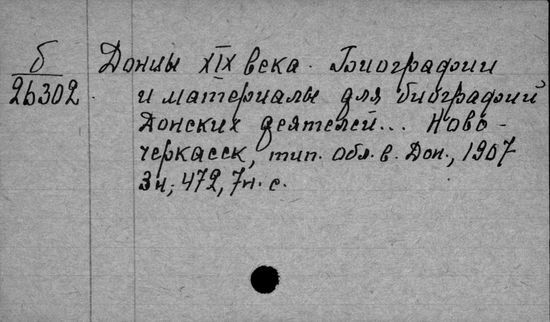 б
26302
Донцы XIX века. Биографии
и материалы для биографий
Донских деятелей... Ново-
черкасск, тип. обл. в. Дон., 1907
3н., 472, 7н. с.